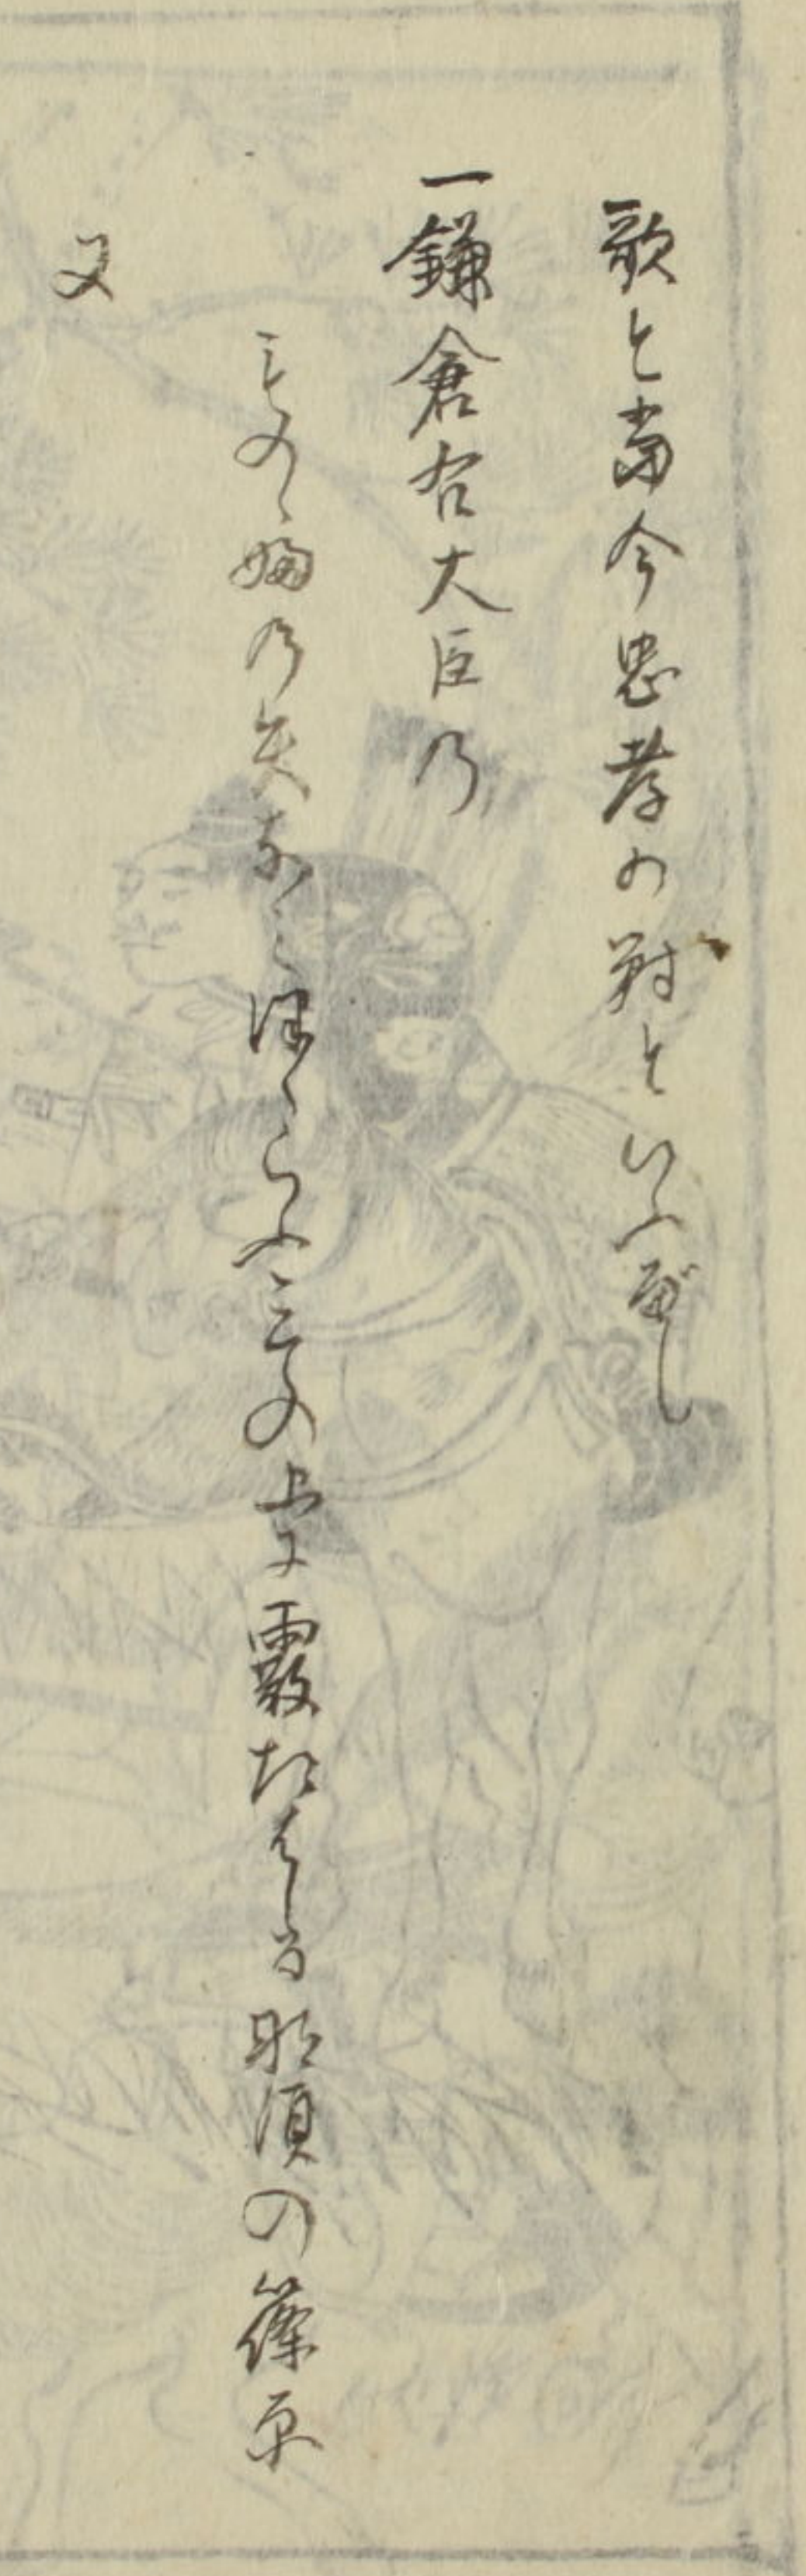 歌と当今忠孝の戦といふべし
一鎌倉右大臣乃
ものゝ婦乃矢なみつくらふこの上に霰たはしる那須の篠原
又